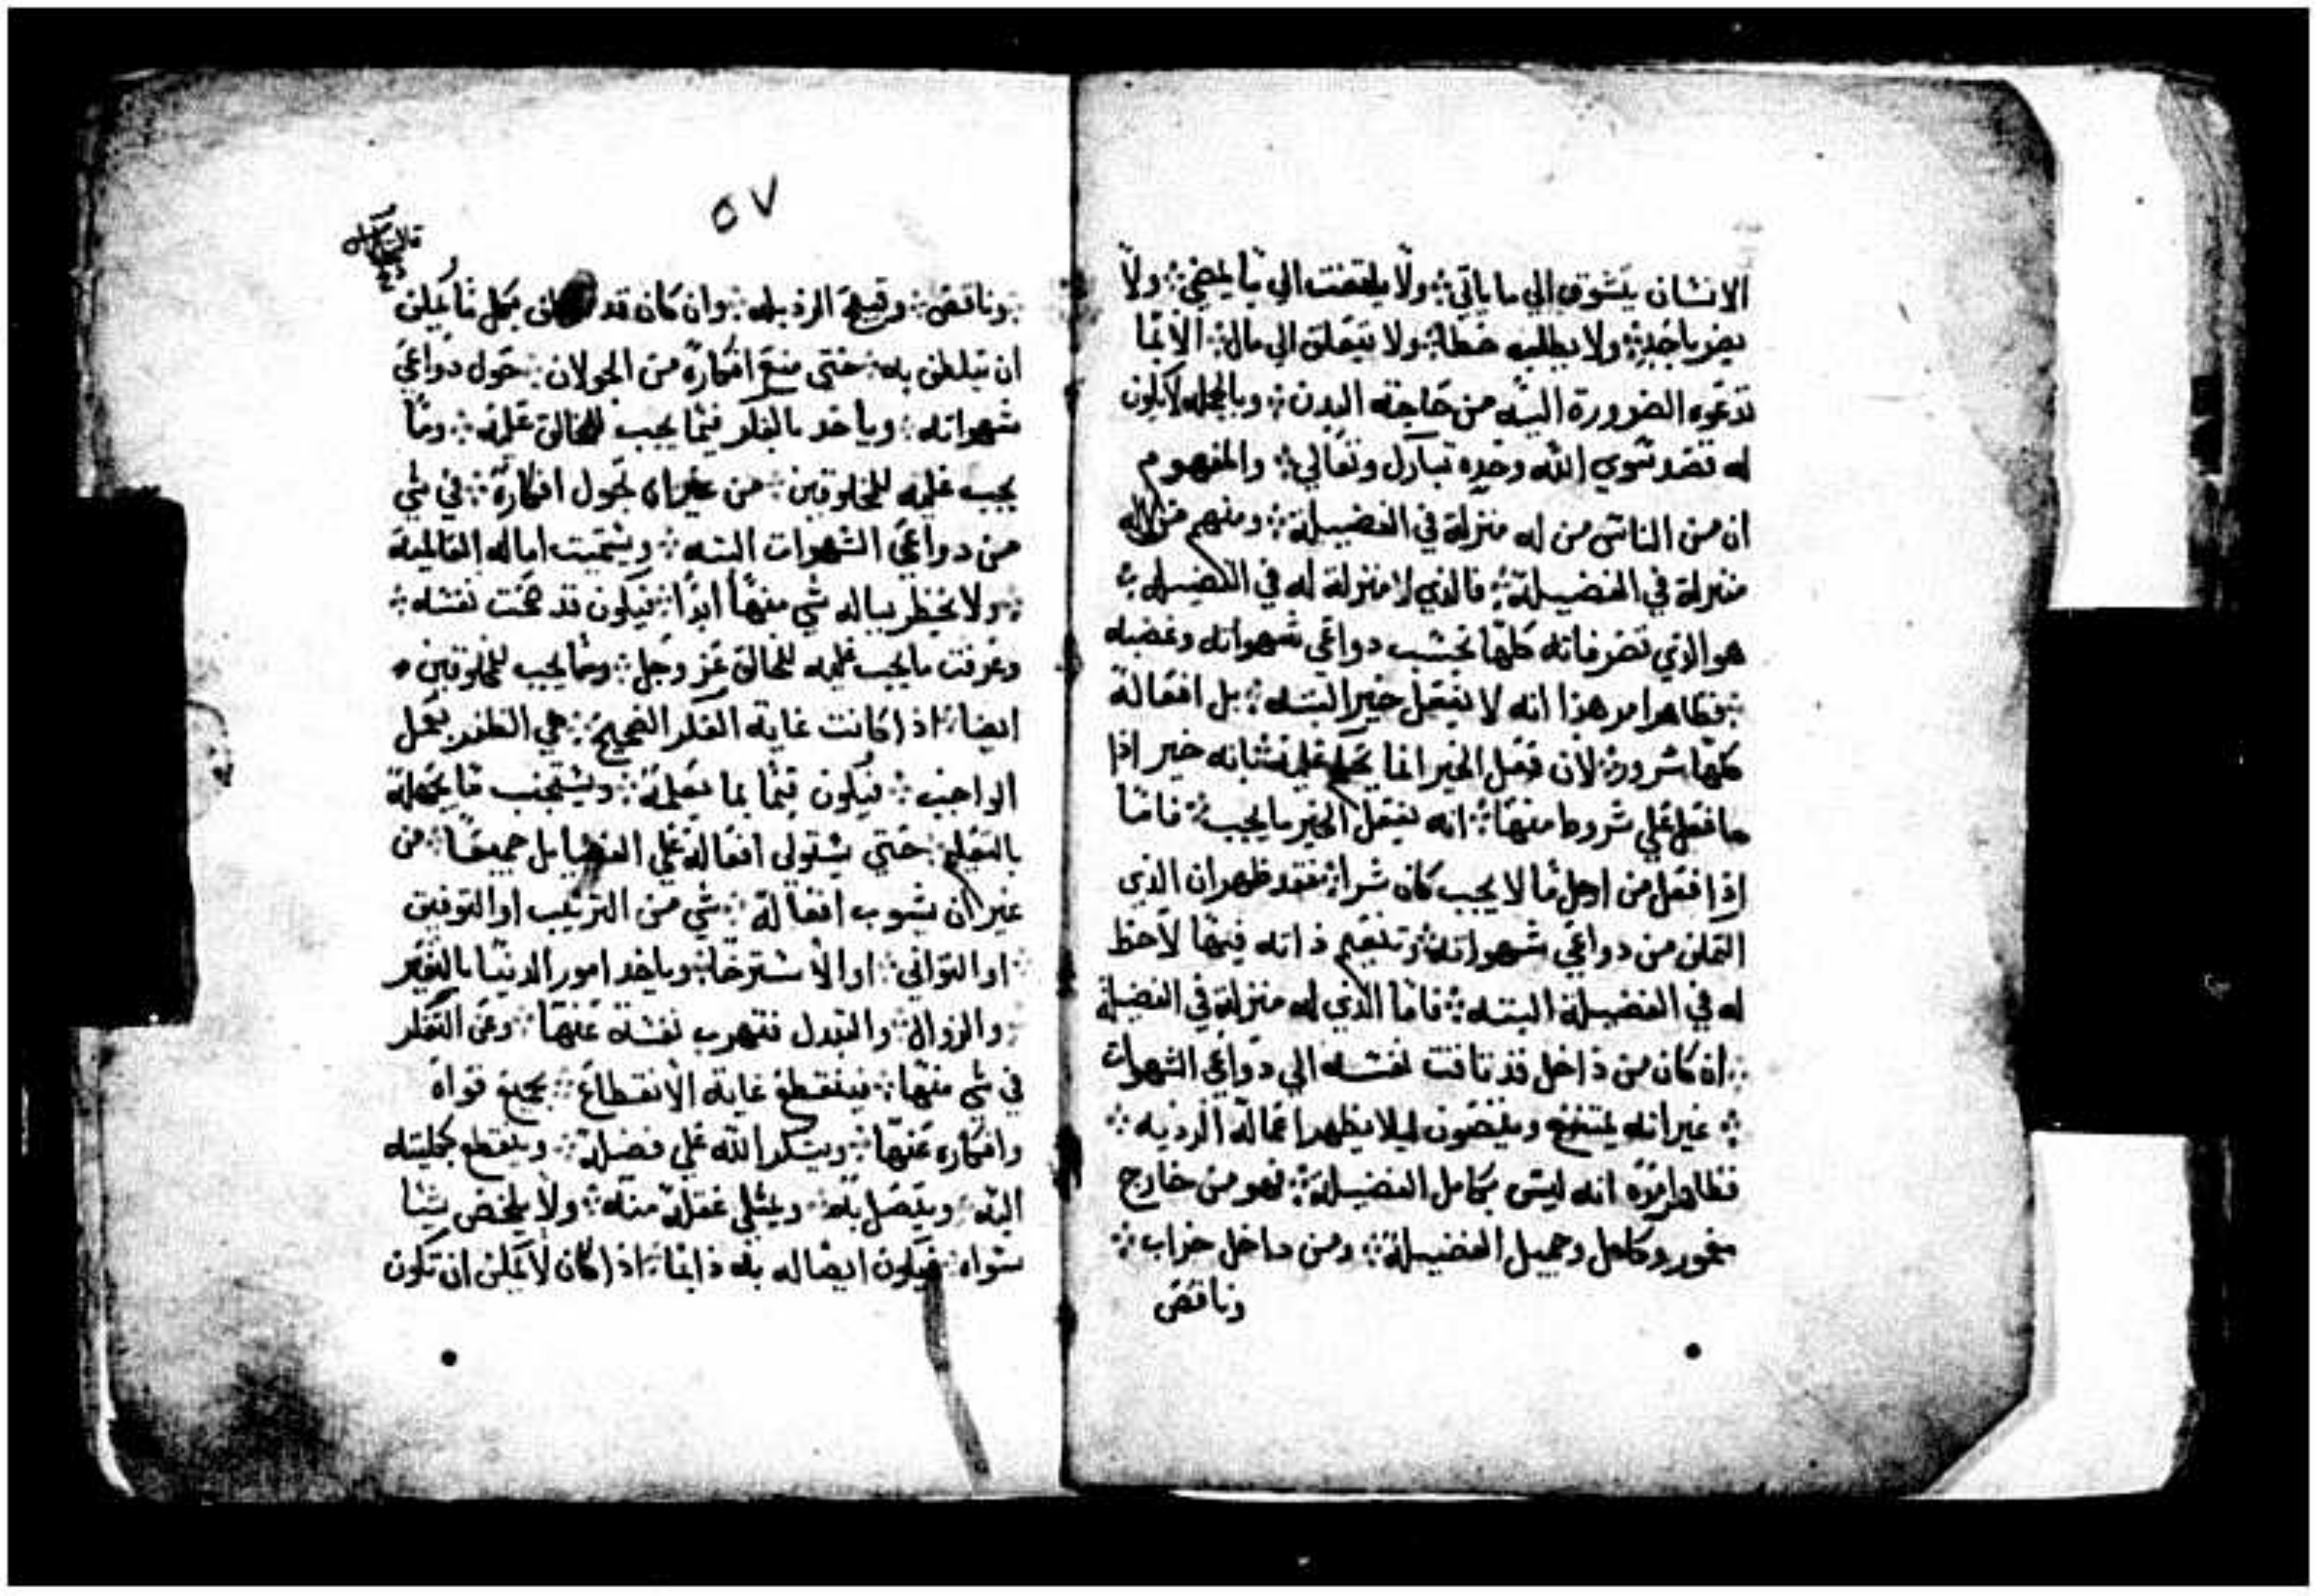 الانسان يتشوق الي ما ياتي ولا يلتفت الي ما يمضي ولا
يضر باحد ولا يطلب حظا ولا يتعلق الي مال الا بما
تدعوه الضرورة اليه من حاجته البدن وبالجمله لا يكون
له قصد سوي الله وحده تبارك وتعالي والمفهوم
ان من الناس من له منزلة في الفضيلة ومنهم من لا له
منزلة في الفضيلة فالذي لا منزلة له في الفضيله
هو الذي تصرفاته كلها بحسب دواعي شهواته وغضبه
فظاهر امر هذا انه لا يفعل خير البته بل افعاله
كلها شرور لان فعل الخير انما يحكم علي نفسانه خير اذا
ما فعل علي شروط منها انه يفعل الخير ما يجب فاما
اذا فعل من اجل ما لا يجب كان شرا فقد ظهر ان الذي
التمكن من دواعي شهواته وتنعيم ذاته فيها لا حظ
له في الفضيلة البته فاما الذي له منزلة في الفضيلة
ان كان من داخل قد تاقت نفسه الي دواعي الشهوات
غير انه يمتنع ويتصون ليلا يظهر اعماله الرديه
فظاهر امره انه ليس بكامل الفضيلة فهو من خارج
معمور وكامل وجميل الفضيلة ومن داخل خراب
وناقص
٥٧
وناقص وقبيح الرذيله وان كان قد بكل ما يمكن
ان يتلطف به حتي منع افكاره من الجولان حول دواعي
شهواته وياخد بالفكر فيما يجب للخالق عليه وما
يجب عليه للمخلوقين من غير ان تجول افكاره في شي
من دواعي الشهوات البته ويستميت اماله العالمية
ولا يخطر بباله شي منها ابدا فيكون قد صحت نفسه
وعرفت ما يجب عليه للخالق عز وجل وما يجب للمخلوقين
ايضا اذ كانت غاية الفكر الصحيح هي الظفر بعمل
الواجب فيكون قيما بما يعلمه ويستجنب ما يجهله
بالتعليم حتي يستولي افعاله علي الفضايل جميعا من
غير ان يشوب افعاله شي من الترتيب او التوفيق
او التواني او الاسترخا وياخد امور الدنيا بالتغير
والزوال والتبدل فتهرب نفسه عنها وعن التفكر
في شي منها فينقطع غاية الانقطاع بجميع قواه
وافكاره عنها ويشكر الله علي فضله وينقطع بكليته
اليه ويتصل به ويمتلي عقله منه ولا يلحق شيا
سواه فيكون ايصاله به دايما اذ كان لا يمكن ان تكون